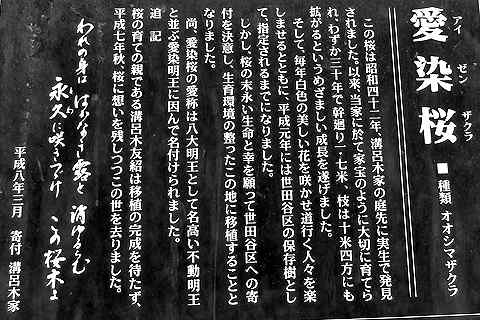 アイ ゼン ザクラ
愛染桜
■種類 オオシマザクラ
この桜は昭和四十二年、溝呂木家の庭先に実生で発見
されました。以来、当家に於て家宝のように大切に育てら
れ、わずか三十年で幹廻り一・七米、枝は十米四方にも
拡がるというめざましい成長を遂げました。
そして、毎年白色の美しい花を咲かせ道行く人々を楽
しませるとともに、平成元年には世田谷区の保存樹とし
て、指定されるまでになりました。
しかし、桜の末永い生命と幸を願って世田谷区への寄
付を決意し、生育環境の整ったこの地に移植することと
なりました。
尚、愛染桜の愛称は八大明王として名高い不動明王
と並ぶ愛染明王に因んで名付けられました。
追記
桜の育ての親である溝呂木友紹は移植の完成を待たず、
平成七年秋、桜に想いを残しつつこの世を去りました。
われの身は はかなき露と 消ゆるらむ
永久に咲きつづけ この桜木よ
平成八年三月 寄付 溝呂木家